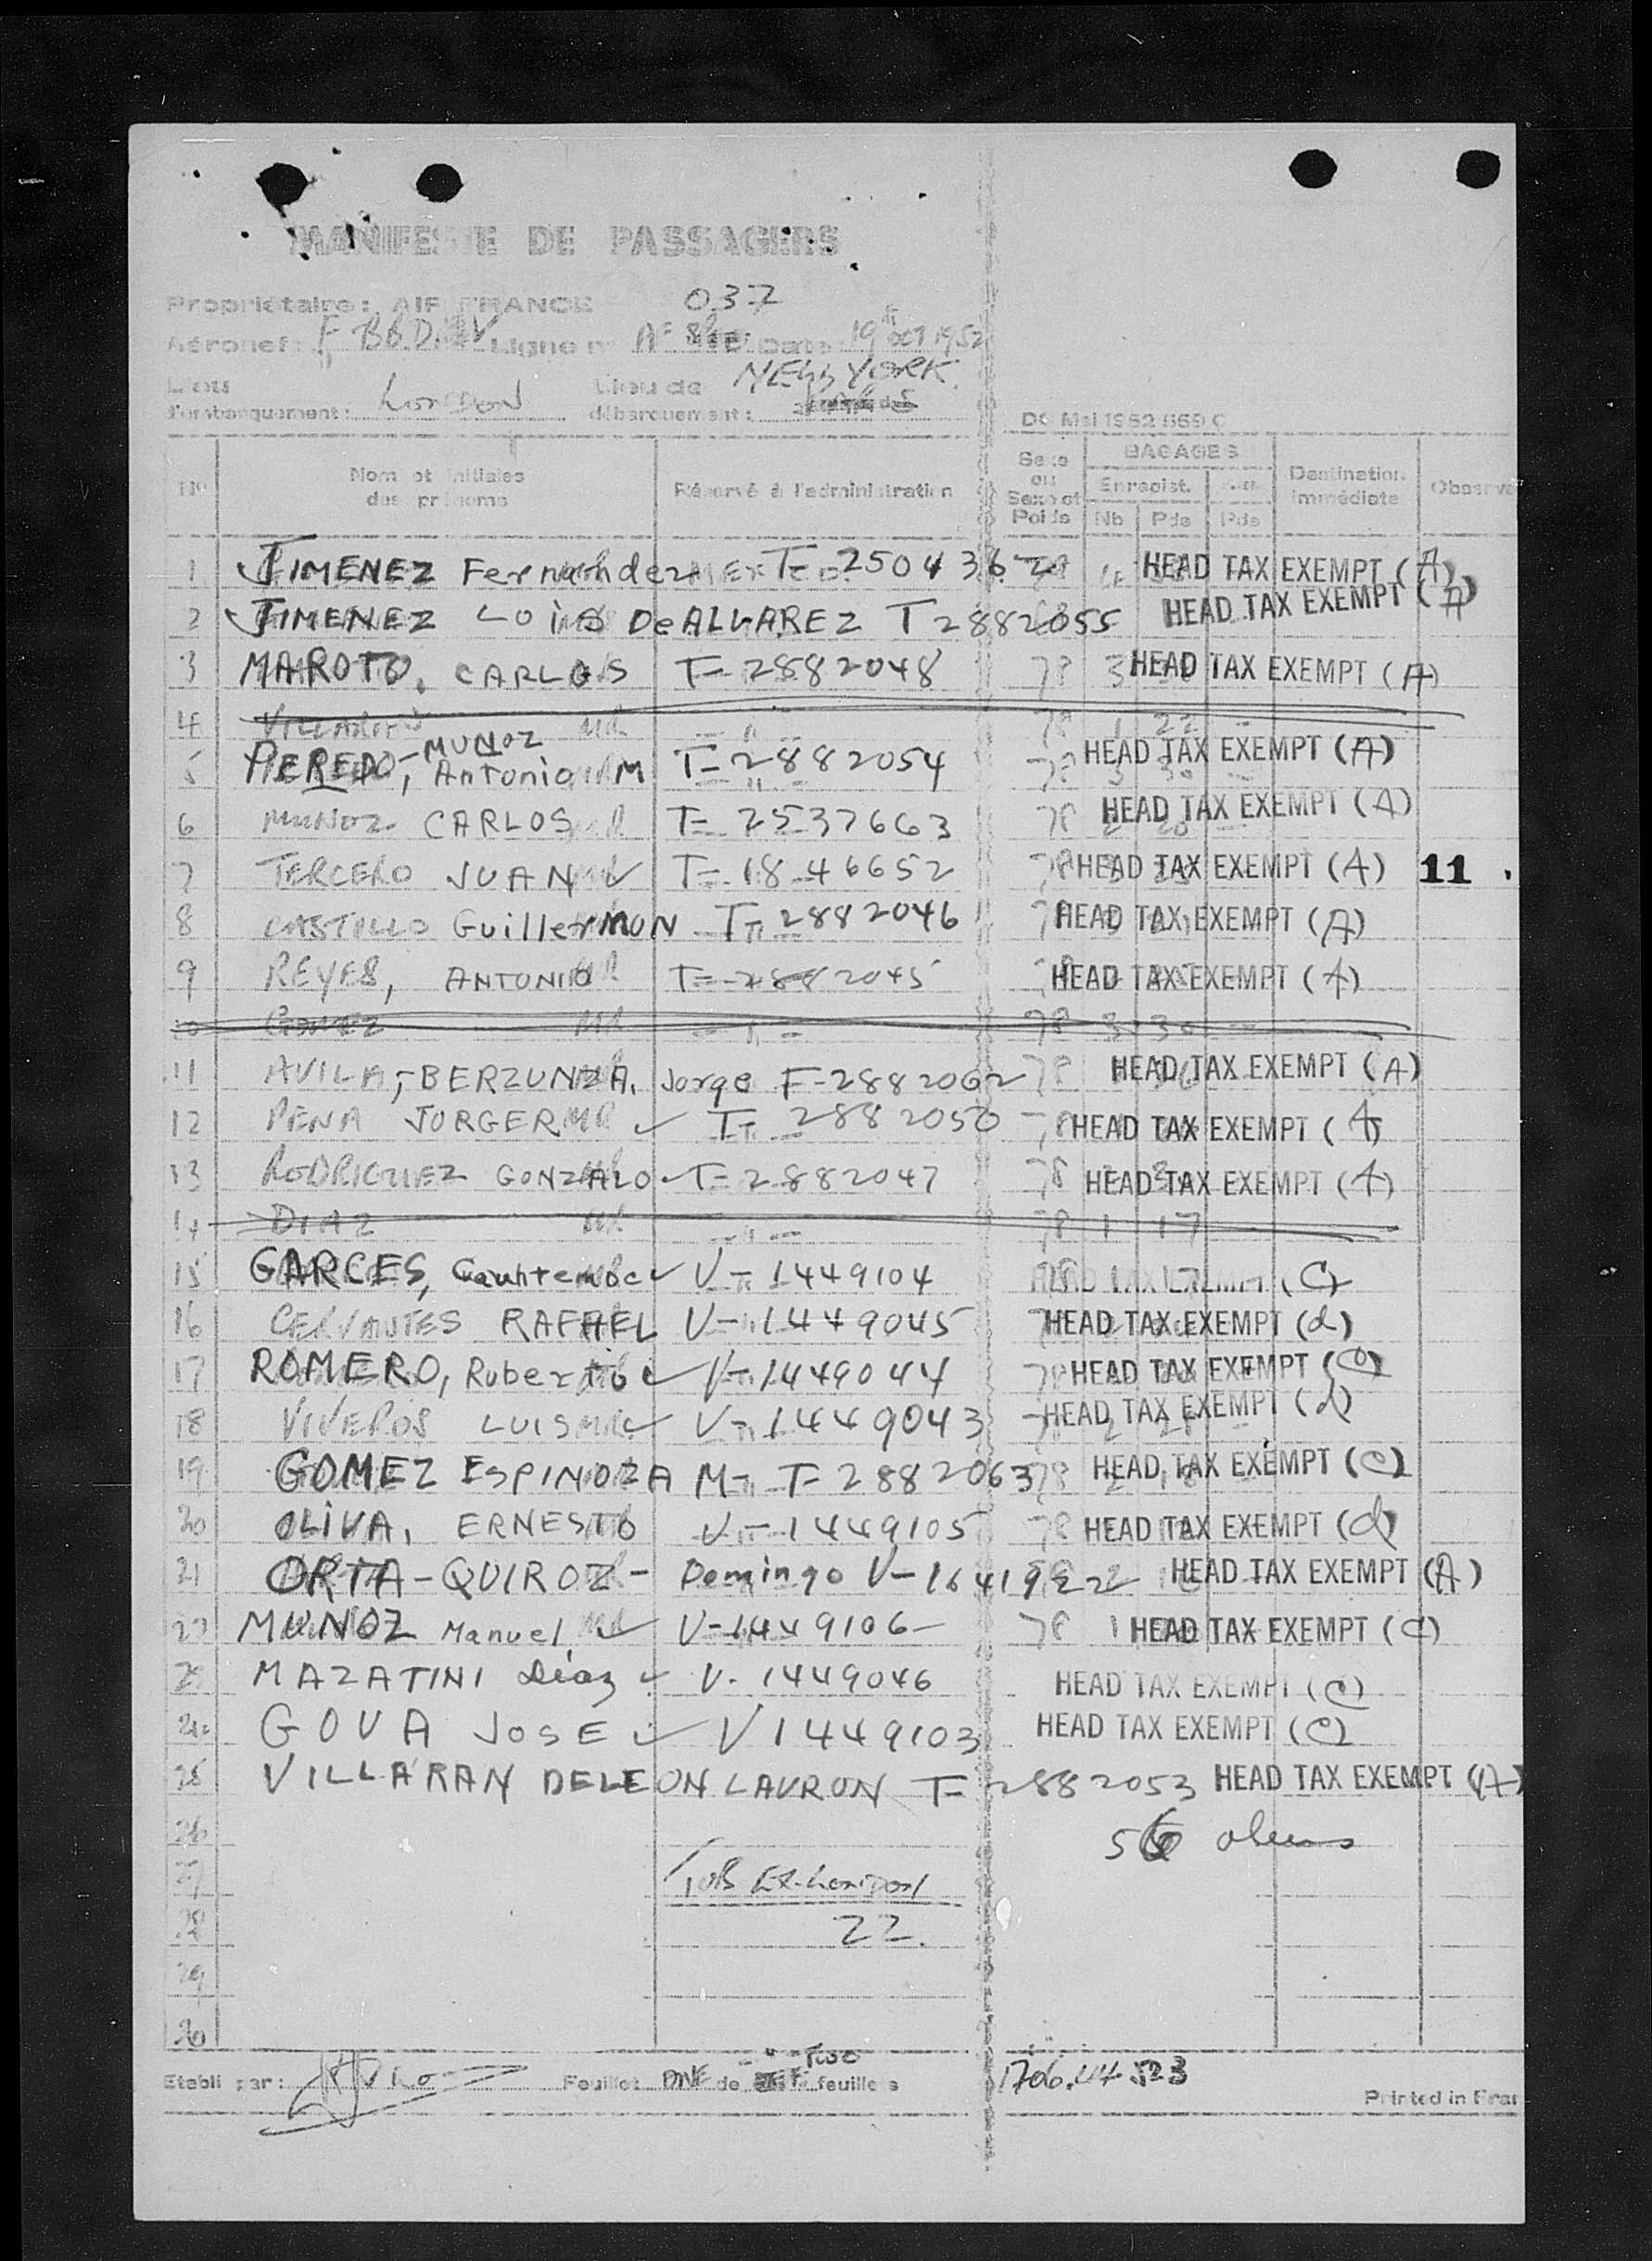 MANIFESTE DE PASSAGERS
Propriétaire: AIR FRANCE 037
Aéronef: Ligne n° AF Date: 19 OCT 1952
Lieu d'embarquement: LONDON Lieu de débarquement: NEW YORK
DC Mai 1952 669 C
No Nom et initiales des prénoms Réservé à l'administration Sexe ou Sexe et Poids BAGAGES Enregist. Nb Pds Pds Destination immédiate Observ
1 JIMENEZ Fernandez T-2504362 HEAD TAX EXEMPT (A)
2 JIMENEZ DeALVAREZ T2882055 HEAD TAX EXEMPT (A)
3 MAROTO, CARLOS T-2882048 78 3 HEAD TAX EXEMPT (A)
4 MR - " - 78 1 22 -
5 PEREDO-MUNOZ, Antonio M T-2882054 78 3 30 HEAD TAX EXEMPT (A)
6 MUNOZ CARLOS T-2537663 78 2 20 HEAD TAX EXEMPT (A)
7 TERCERO JUAN T-1846652 78 HEAD TAX EXEMPT (A) 11
8 CASTILLO GuillerMON T-2882046 78 HEAD TAX EXEMPT (A)
9 REYES, ANTONIO T-2882045 HEAD TAX EXEMPT (A)
10 GOMEZ MR - " - 78 3 30 -
11 AVILA-BERZUNZA, Jorge T-2882062 78 HEAD TAX EXEMPT (A)
12 PENA JORGER T-2882050 78 HEAD TAX EXEMPT (A)
13 RODRIGUEZ GONZALO T-2882047 78 HEAD TAX EXEMPT (A)
14 DIAZ MR - " - 78 1 17
15 GARCES, V-1449104 HEAD TAX EXEMPT (C)
16 CERVANTES RAFAEL V-1449045 HEAD TAX EXEMPT (d)
17 ROMERO, V-1449044 78 HEAD TAX EXEMPT (C)
18 VIVEROS LUIS V-1449043 HEAD TAX EXEMPT (d)
19 GOMEZ ESPINOZA M- T-2882063 78 HEAD TAX EXEMPT (C)
20 OLIVA, ERNESTO V-1449105 78 HEAD TAX EXEMPT (d)
21 ORTA-QUIROZ- Domingo HEAD TAX EXEMPT (A)
22 MUNOZ Manuel V-1449106- 78 1 HEAD TAX EXEMPT (C)
23 MAZATINI Diaz V-1449046 HEAD TAX EXEMPT (C)
24 GOVA JOSE V1449103 HEAD TAX EXEMPT (C)
25 VILLARAN DELEON LAURON T-2882053 HEAD TAX EXEMPT (A)
26
27
28 22.
29
30
Etabli par: Feuillet ONE de TWO feuillets
Printed in Fran